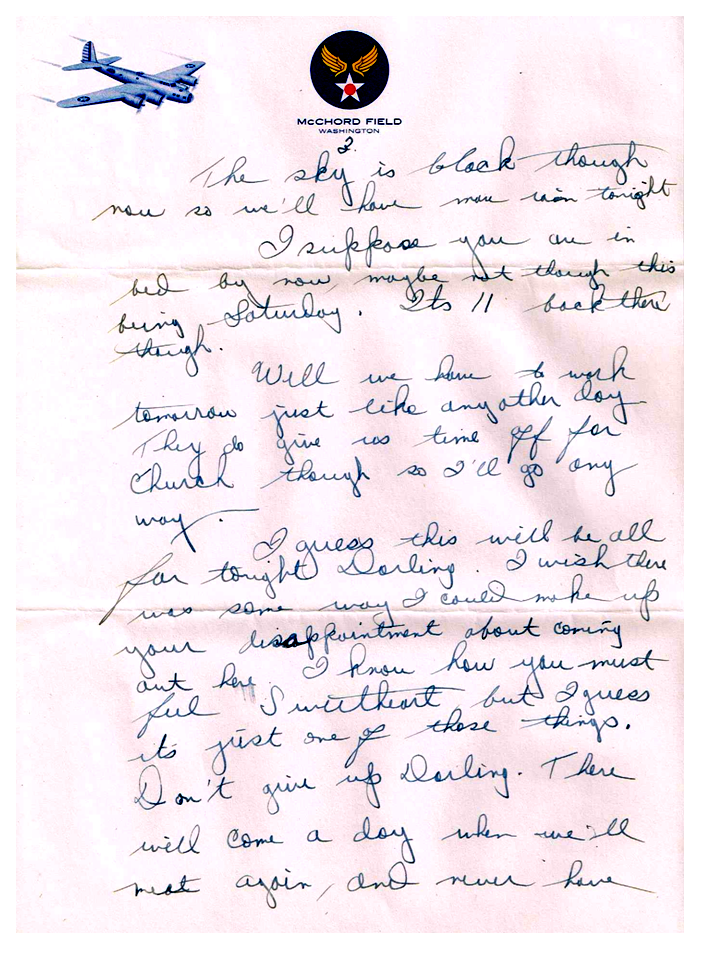 McCHORD FIELD
WASHINGTON
2.
The sky is black though
now so we'll have more rain tonight
I suppose you are in
bed by now maybe not though this
being Saturday. Its 11 back there
though.
Well we have to work
tomorrow just like any other day
They do give us time off for
Church though so I'll go any
way.
I guess this will be all
for tonight Darling. I wish there
was some way I could make up
your disappointment about coming
out here. I know how you must
feel Sweetheart but I guess
its just one of those things.
Don't give up Darling. There
will come a day when we'll
meet again, and never have